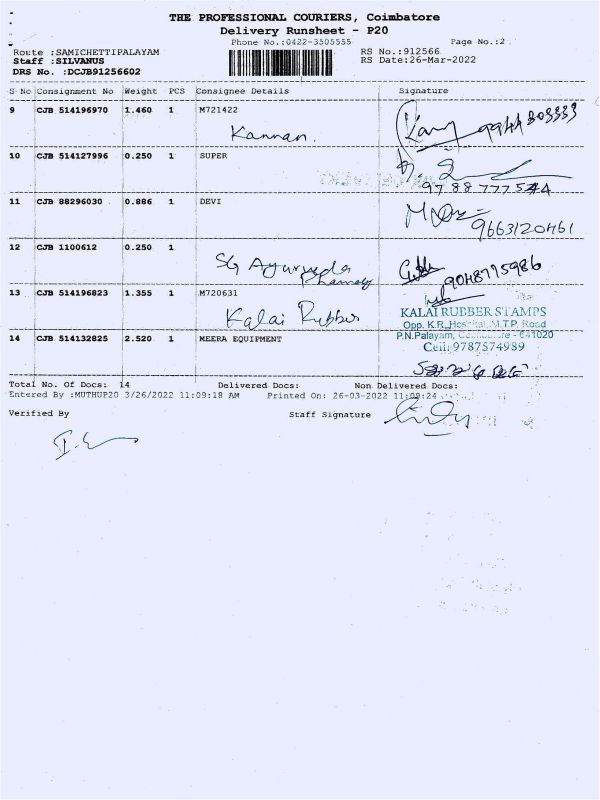 THE PROFESSIONAL COURIERS, Coimbatore
Delivery Runsheet - P20
Phone No.:0422-3505555 Page No.:2
Route :SAMICHETTIPALAYAM RS No.:912566
Staff :SILVANUS RS Date:26-Mar-2022
DRS No. :DCJB91256602
S No Consignment No Weight PCS Consignee Details Signature
9 CJB 514196970 1.460 1 M721422
Kannan
10 CJB 514127996 0.250 1 SUPER
9788777544
11 CJB 88296030 0.886 1 DEVI
9663120461
12 CJB 1100612 0.250 1
SG Ayurveda
Pharmacy
9048775986
13 CJB 514196823 1.355 1 M720631
Kalai Rubber
KALAI RUBBER STAMPS
Opp. K.R. Hospital, M.T.P. Road
P.N.Palayam, Coimbatore - 641020
Cell: 9787574989
14 CJB 514132825 2.520 1 MEERA EQUIPMENT
Total No. Of Docs: 14 Delivered Docs: Non Delivered Docs:
Entered By :MUTHUP20 3/26/2022 11:09:18 AM Printed On: 26-03-2022 11:09:24
Verified By Staff Signature